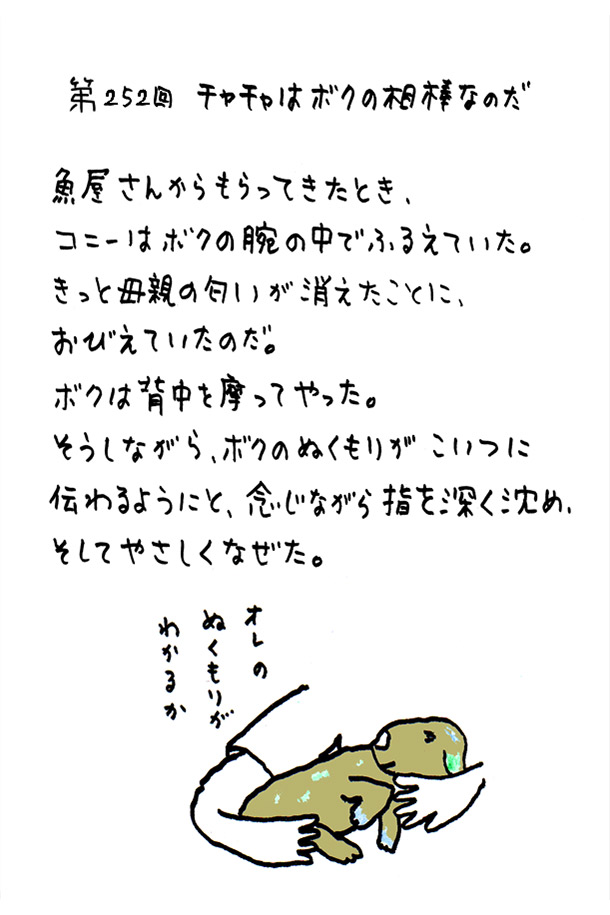 第252回 チャチャはボクの相棒なのだ
魚屋さんからもらってきたとき、
コニーはボクの腕の中でふるえていた。
きっと母親の匂いが消えたことに、
おびえていたのだ。
ボクは背中を摩ってやった。
そうしながら、ボクのぬくもりが こいつに
伝わるようにと、念じながら指を深く沈め、
そしてやさしくなぜた。
オレの
ぬくもりが
わかるか